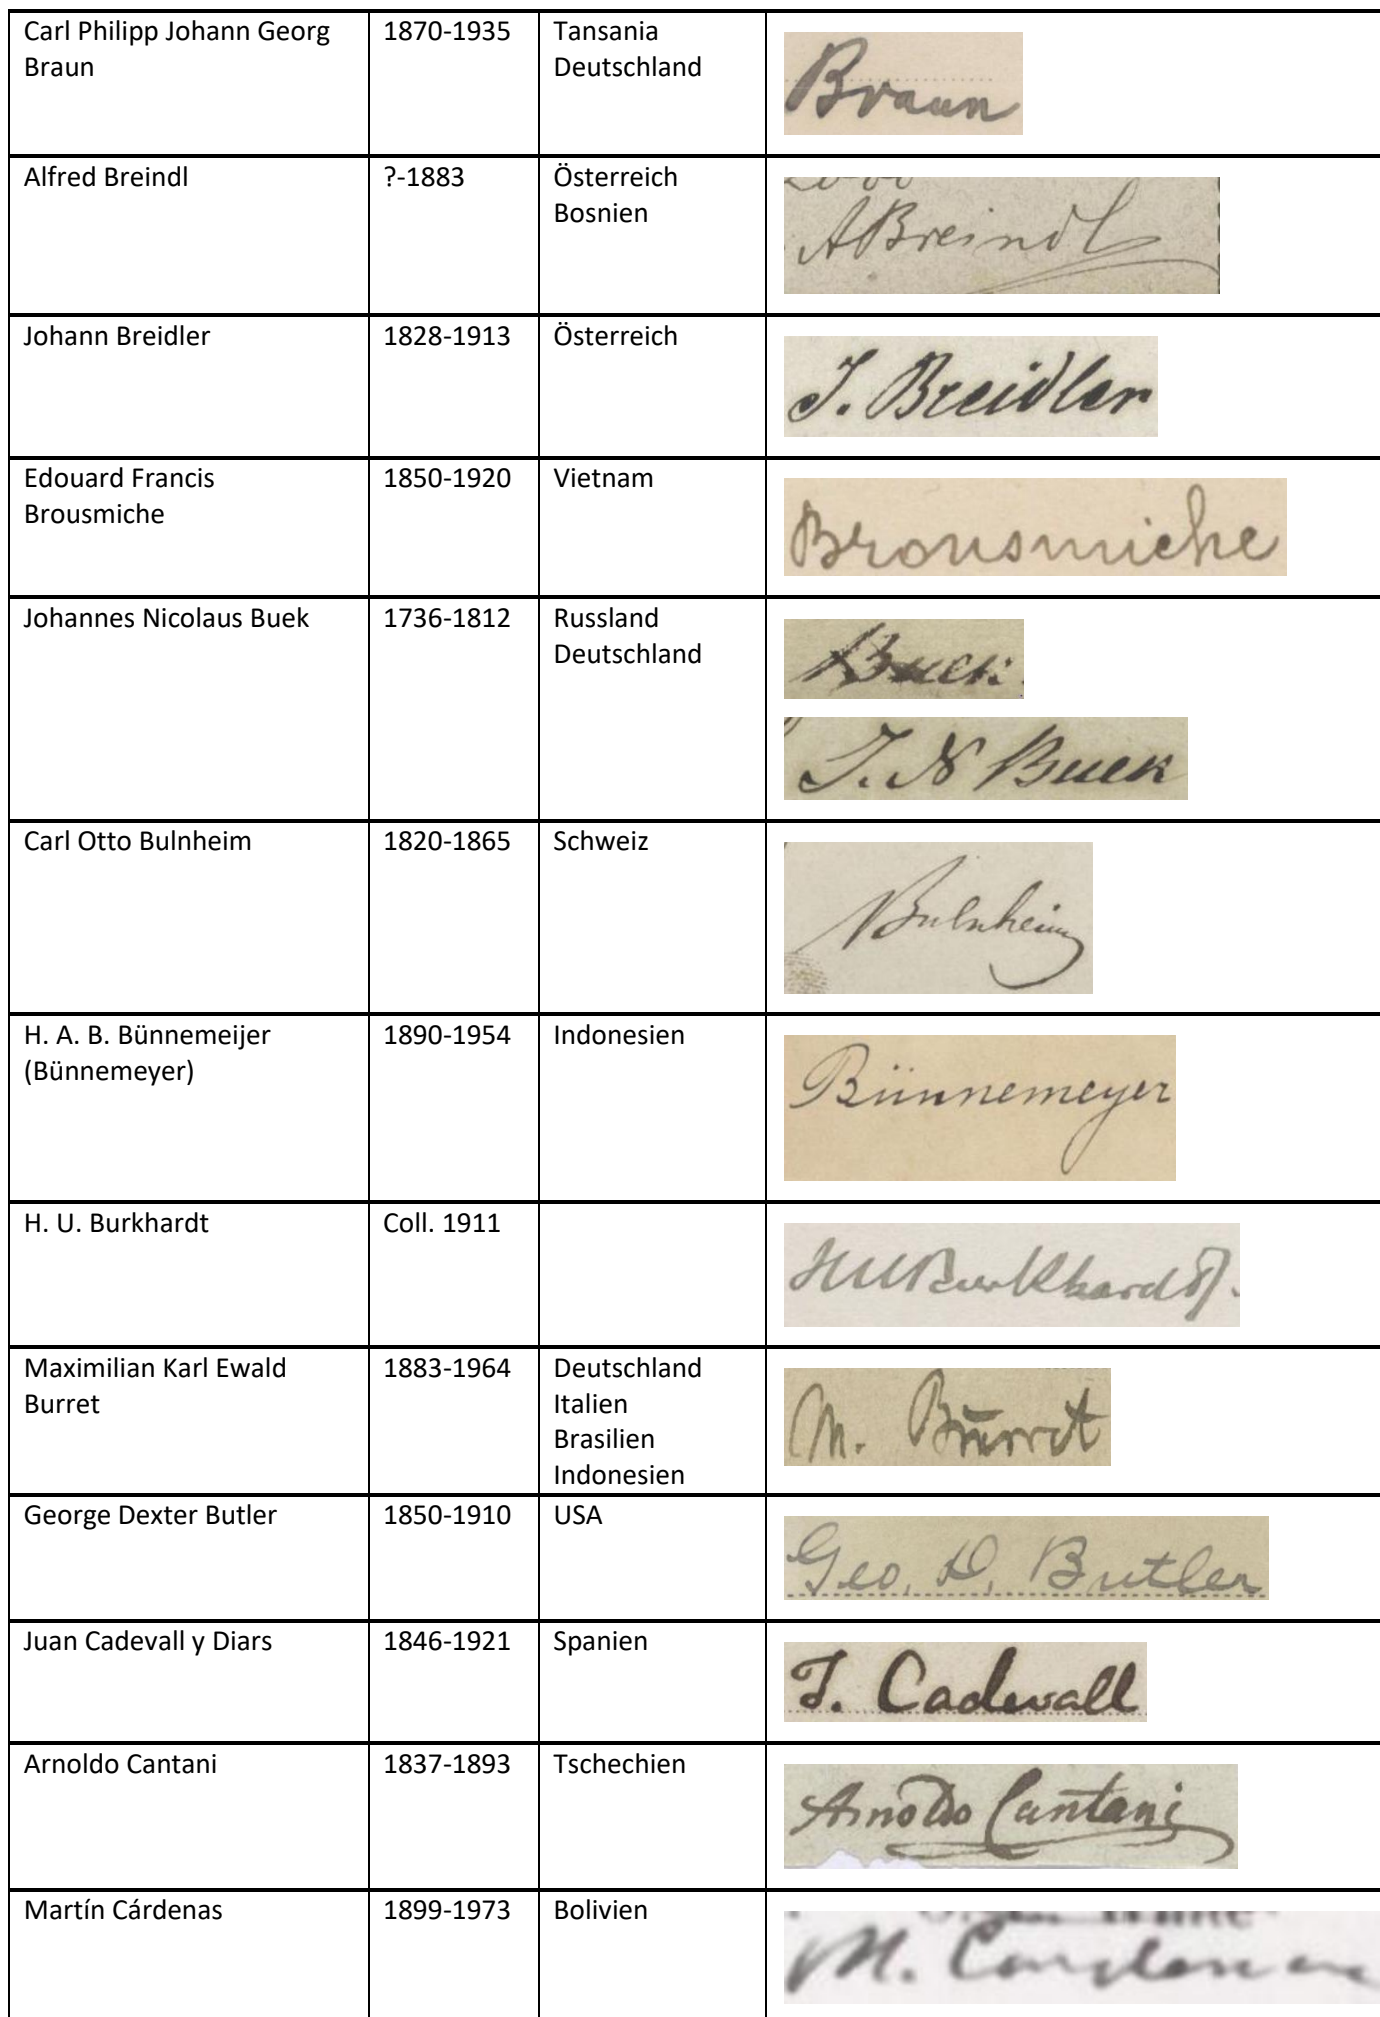 Carl Philipp Johann Georg
Braun
1870-1935
Tansania
Deutschland
Braun
Alfred Breindl
?-1883
Österreich
Bosnien
ABreindl
Johann Breidler
1828-1913
Österreich
J. Breidler
Edouard Francis
Brousmiche
1850-1920
Vietnam
Brousmiche
Johannes Nicolaus Buek
1736-1812
Russland
Deutschland
Buek.
J. N Buek
Carl Otto Bulnheim
1820-1865
Schweiz
Bulnheim
H. A. B. Bünnemeijer
(Bünnemeyer)
1890-1954
Indonesien
Bünnemeyer
H. U. Burkhardt
Coll. 1911
HUBurkhardt.
Maximilian Karl Ewald
Burret
1883-1964
Deutschland
Italien
Brasilien
Indonesien
M. Burret
George Dexter Butler
1850-1910
USA
Geo. D. Butler
Juan Cadevall y Diars
1846-1921
Spanien
J. Cadevall
Arnoldo Cantani
1837-1893
Tschechien
Arnoldo Cantani
Martín Cárdenas
1899-1973
Bolivien
M. Cardenas